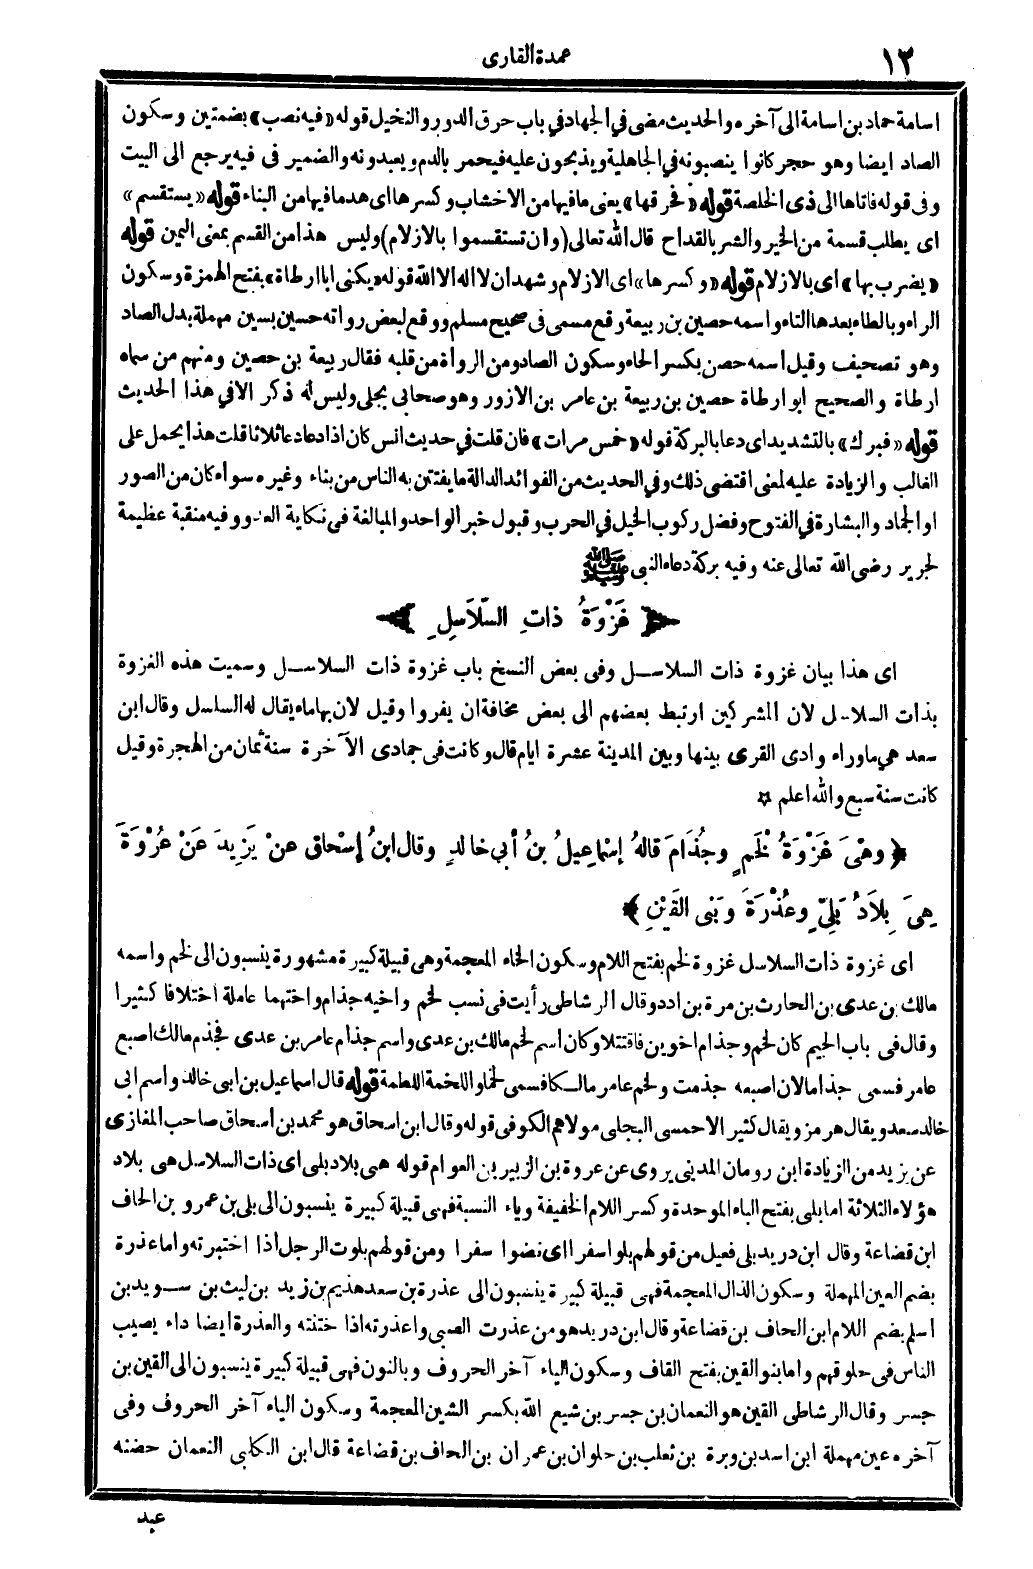 ١٢
عمدة القارى
اسامة حماد بن اسامة الى آخره والحديث مضى في الجهاد في باب حرق الدور والنخيل قوله «فيه نصب» بضمتين وسكون
الصاد ايضا وهو حجر كانوا ينصبونه في الجاهلية ويذبحون عليه فيحمر بالدم ويعبدونه والضمير فى فيه يرجع الى البيت
وفى قوله فاتاها الى ذى الخلصة قوله «فحرقها» يعنى ما فيها من الاخشاب وكسرها اى هدم ما فيها من البناء قوله «يستقسم»
اى يطلب قسمة من الخير والشر بالقداح قال الله تعالى (وان تستقسموا بالازلام) وليس هذا من القسم بمعنى اليمين قوله
«يضرب بها» اى بالازلام قوله «وكسرها» اى الازلام وشهد ان لا اله الا الله قوله «يكنى ابا ارطاة» بفتح الهمزة وسكون
الراء وبالطاء بعدها التاء واسمه حصين بن ربيعة وقع مسمى فى صحيح مسلم ووقع لبعض رواته حسين بسين مهملة بدل الصاد
وهو تصحيف وقيل اسمه حصن بكسر الحاء وسكون الصاد ومن الرواة من قلبه فقال ربيعة بن حصين ومنهم من سماه
ارطاة والصحيح ابو ارطاة حصين بن ربيعة بن عامر بن الازور وهو صحابى بجلى وليس له ذكر الا في هذا الحديث
قوله «فبرك» بالتشديد اى دعا بالبركة قوله «خمس مرات» فان قلت في حديث انس كان اذا دعا دعا ثلاثا قلت هذا يحمل على
الغالب والزيادة عليه لمعنى اقتضى ذلك وفي الحديث من الفوائد الدالة ما يفتتن به الناس من بناء وغيره سواء كان من الصور
او الجماد والبشارة في الفتوح وفضل ركوب الخيل في الحرب وقبول خبر الواحد والمبالغة فى نكاية العدو وفيه منقبة عظيمة
لجرير رضى الله تعالى عنه وفيه بركة دعاء النبى ﷺ
﴿ غَزْوَةُ ذاتِ السَّلاَسِلِ ﴾
اى هذا بيان غزوة ذات السلاسل وفى بعض النسخ باب غزوة ذات السلاسل وسميت هذه الغزوة
بذات السلاسل لان المشركين ارتبط بعضهم الى بعض مخافة ان يفروا وقيل لان بها ماء يقال له السلسل وقال ابن
سعد هي ما وراء وادى القرى بينها وبين المدينة عشرة ايام قال وكانت فى جمادى الآخرة سنة ثمان من الهجرة وقيل
كانت سنة سبع والله اعلم ✡
﴿ وهْىَ غَزْوَةُ لَخْمٍ وجُذَامَ قالهُ إسْماعِيلُ بنُ أبي خالدٍ وقال ابنُ إسْحاق عنْ يَزِيدَ عَنْ عُرْوَةَ
هِىَ بِلاَدُ بَلِىٍّ وعُذْرَةَ وبَنى القَيْنِ ﴾
اى غزوة ذات السلاسل غزوة لخم بفتح اللام وسكون الخاء المعجمة وهى قبيلة كبيرة مشهورة ينسبون الى لخم واسمه
مالك بن عدى بن الحارث بن مرة بن ادد وقال الرشاطى رأيت فى نسب لخم واخيه جذام واختهما عاملة اختلافا كثيرا
وقال فى باب الجيم كان لخم وجذام اخوين فاقتتلا وكان اسم لخم مالك بن عدى واسم جذام عامر بن عدى فجذم مالك اصبع
عامر فسمى جذاما لان اصبعه جذمت ولخم عامر مالكا فسمى لخما واللخمة اللطمة قوله قال اسماعيل بن ابى خالد واسم ابى
خالد سعد ويقال هرمز ويقال كثير الاحمسى البجلى مولاهم الكوفى قوله وقال ابن اسحاق هو محمد بن اسحاق صاحب المغازى
عن يزيد من الزيادة ابن رومان المدينى يروى عن عروة بن الزبير بن العوام قوله هى بلاد بلى اى ذات السلاسل هى بلاد
هؤلاء الثلاثة اما بلى بفتح الباء الموحدة وكسر اللام الخفيفة وياء النسبة فهى قبيلة كبيرة ينسبون الى بلى بن عمرو بن الحاف
ابن قضاعة وقال ابن دريد بلى فعيل من قولهم بلو اسفرا اى نضوا سفرا ومن قولهم بلوت الرجل اذا اختبرته واما عذرة
بضم العين المهملة وسكون الذال المعجمة فهى قبيلة كبيرة ينسبون الى عذرة بن سعد هذيم بن زيد بن ليث بن سويد بن
اسلم بضم اللام ابن الحاف بن قضاعة وقال ابن دريد هو من عذرت الصبى واعذرته اذا ختنته والعذرة ايضا داء يصيب
الناس فى حلوقهم واما بنو القين بفتح القاف وسكون الياء آخر الحروف وبالنون فهى قبيلة كبيرة ينسبون الى القين بن
جسر وقال الرشاطى القين هو النعمان بن جسر بن شيع الله بكسر الشين المعجمة وسكون الياء آخر الحروف وفى
آخره عين مهملة ابن اسد بن وبرة بن ثعلب بن حلوان بن عمران بن الحاف بن قضاعة قال ابن الكلبى النعمان حضنه
عبد